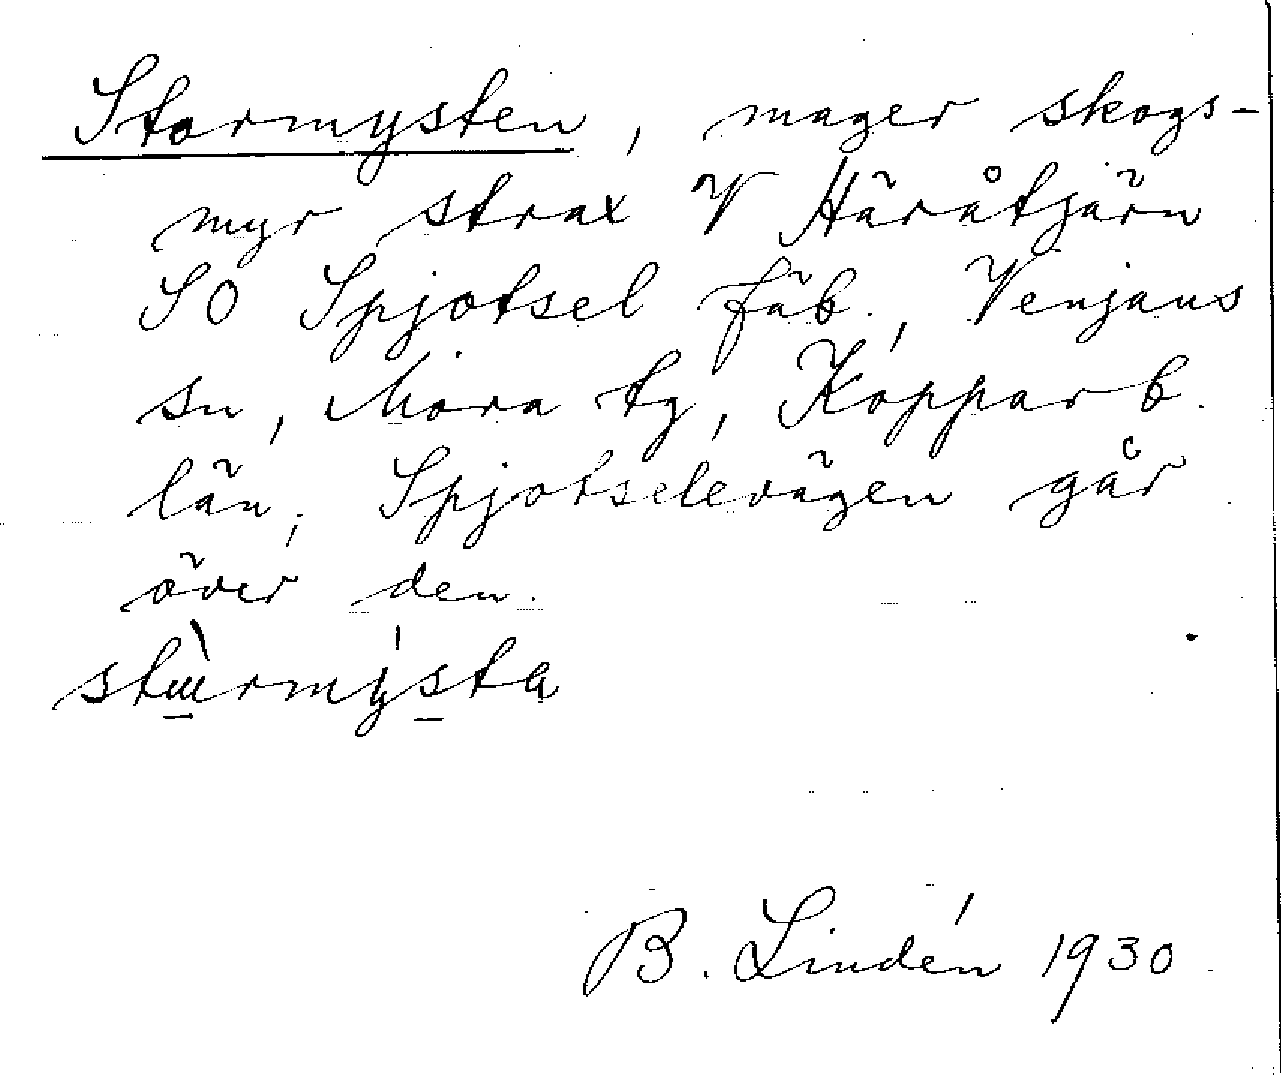 Stormysten, mager skogs-
myr strax V Häråtjärn
SO Spjotsel fäb., Venjans
sn, Mora tg, Kopparb.
län; Spjotselevägen går
över den.
stɯ̀rmýsta
B. Lindén 1930